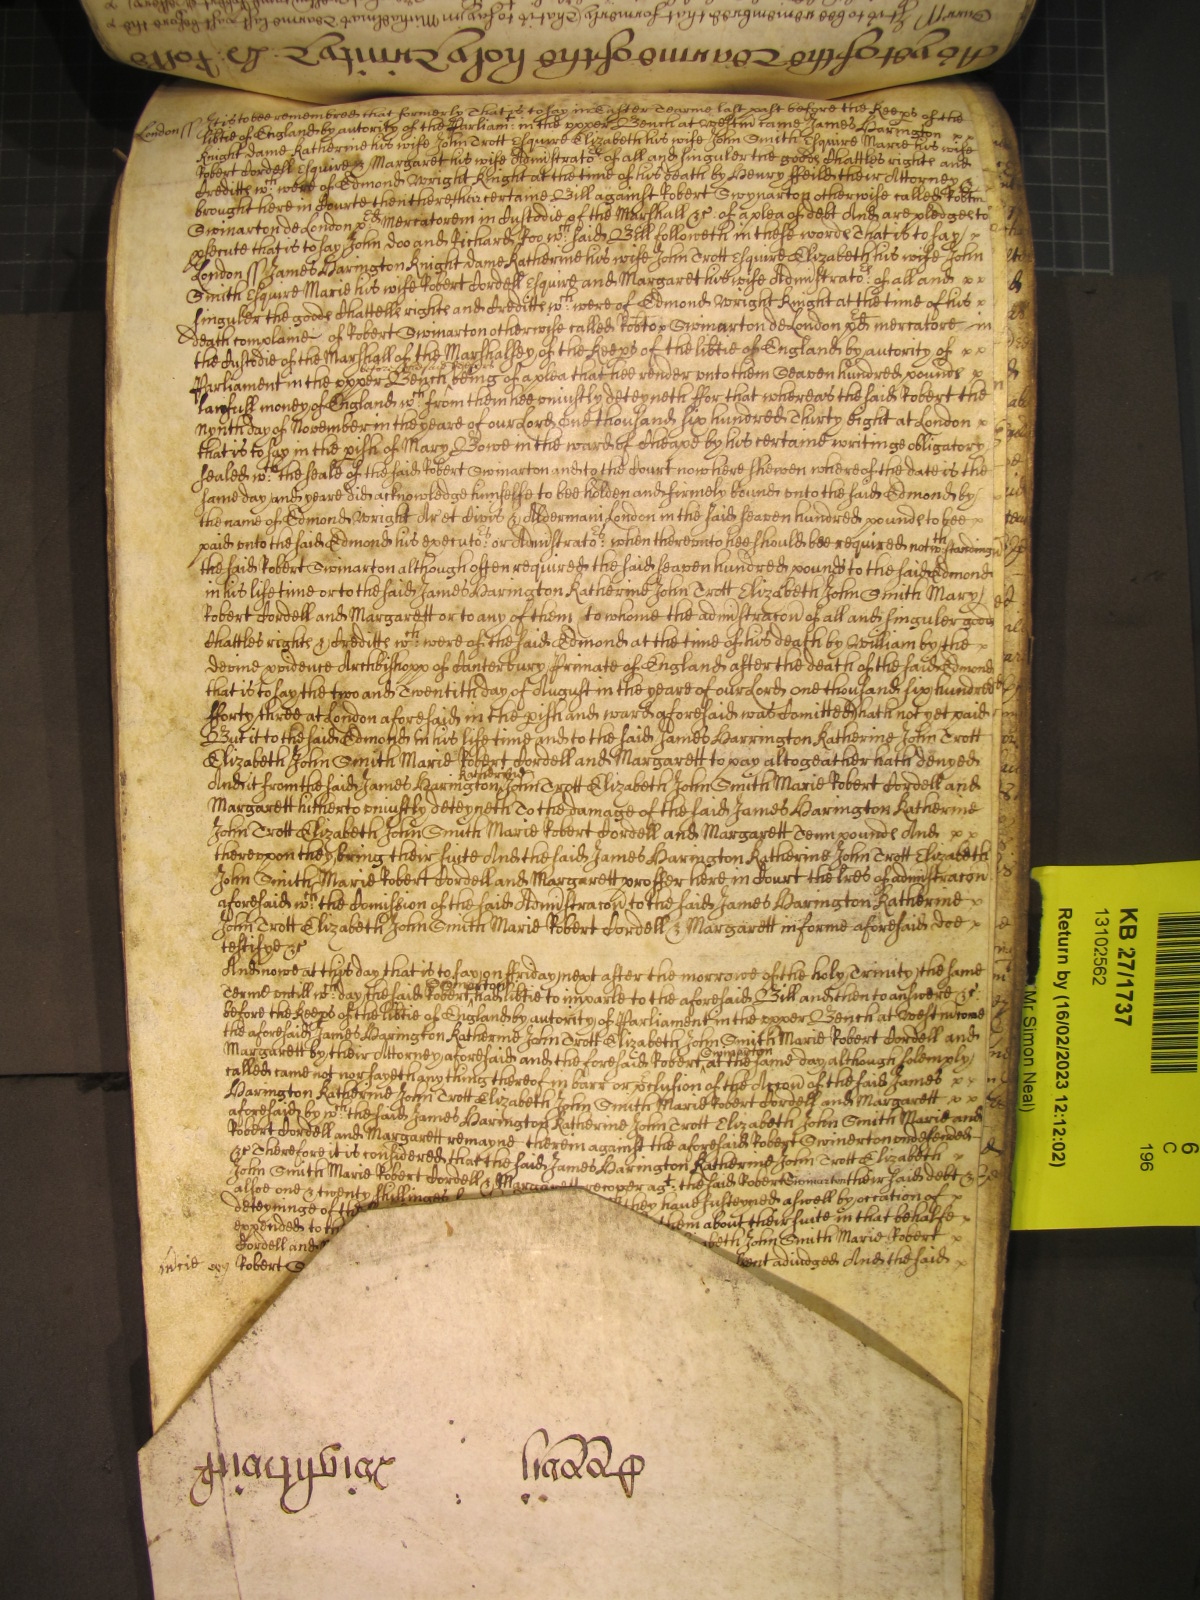 London ss It is to bee remembred that formerly That is to say in Easter Tearme last past before the Keeps of the
lib̃tie of England by autority of the Parliam:t in the upper Bench at Westm̃ came James Harington x x
Knight dame Katherine his wife John Trott Esquire Elizabeth his wife John Smith Esquire Marie his wife
Robert Cordell Esquire & Margaret his wife Administrato:rs of all and singuler the goods Chattles rights and
Creditts w:ch were of Edmond Wright Knight at the time of his death by Henry ffeild their Attorney & x
brought here in Courte then there their certaine Bill against Robert Swynarton otherwise called Robtm
Swinarton de London p̃d Mercatorem in Custodie of the Marshall &c. of a plea of debt And are pledges to
p̃secute that is to say John Doo and Richard Roo w:ch said Bill followeth in these words That is to say /
London ss James Harington Knight dame Katherine his wife John Trott Esquire Elizabeth his wife John
Smith Esquire Marie his wife Robert Cordell Esquire and Margaret his wife Administrato:rs of all and x x
singuler the goods Chattells rights and Creditts w:ch were of Edmond Wright Knight at the time of his x
death complaine of Robert Swinarton otherwise called Swinarton de London p̃d mercatore in
the Custodie of the Marshall of the Marshalsey of the Keeps of the lib̃tie of England by autority of x x
Parliament in the upper Bench being of a plea that hee render unto them Seaven hundred pounds x
lawfull money of England w:ch from them hee uniustly deteyneth ffor that whereas the said Robert the
Nynth day of November in the yeare of our Lord One thousand six hundred Thirty Eight at London x
that is to say in the p̃ish of Mary Bowe in the ward of Cheape by his certaine writinge obligatory
sealed w:th the seale of the said Robert Swinarton and to the Court now here shewen whereof the date is the
same day and yeare did acknowledge himselfe to bee holden and firmely bound unto the said Edmond by
the name of Edmond Wright Ar et Civis & Aldermani London in the said seaven hundred pounds to bee x
paid unto the said Edmond his executo:rs or Administrato:rs when thereunto hee should bee required notw:thstanding
the said Robert Swinarton although often required the said seaven hundred pounds to the said Edmond
in his life time or to the said James Harington Katherine John Trott Elizabeth John Smith Mary
Robert Cordell and Margarett or to any of them to whome the administracon of all and singuler goods
Chattles rights & Creditts w:ch were of the said Edmond at the time of his death by William by the x
devine p̃vidence Archbishopp of Canterbury Primate of England after the death of the said Edmond
that is to say the two and Twentith day of August in the yeare of our Lord one thousand six hundred
fforty three at London aforesaid in the p̃ish and ward aforesaid was Comitted hath not yet paid
But it to the said Edmond in his life time and to the said James Harrington Katherine John Trott
Elizabeth John Smith Marie Robert Cordell and Margarett to pay altogeather hath denyed
And it from the said James Harington Katherine John Trott Elizabeth John Smith Marie Robert Cordell and
Margarett hitherto uniustly deteyneth To the damage of the said James Harington Katherine
John Trott Elizabeth John Smith Marie Robert Cordell and Margarett Tenn pounds And x x
thereupon they bring their suite And the said James Harington Katherine John Trott Elizabeth
John Smith Marie Robert Cordell and Margarett proffer here in Court the l̃res of administracon
aforesaid w:ch the Comission of the said Administracon to the said James Harington Katherine x
John Trott Elizabeth John Smith Marie Robert Cordell & Margarett in forme aforesaid doe x
testifye &c
And nowe at this day that is to say on ffriday next after the morrowe of the holy Trinity the same
Terme untill w:ch day the said Robert Swinarton had lib̃tie to imparle to the aforesaid Bill and then to answere &c.
before the Keeps of the lib̃tie of England by autority of Parliament in the upper Bench at Westm̃ come
the aforesaid James Harington Katherine John Trott Elizabeth John Smith Marie Robert Cordell and
Margarett by their Attorney aforesaid and the foresaid Robert Swinarton at the same day although solemply
called came not nor sayeth anything thereof in barr or p̃clusion of the Accon of the said James x x
Harington Katherine John Trott Elizabeth John Smith Marie Robert Cordell and Margarett x x
aforesaid by w:ch the said James Harington Katherine John Trott Elizabeth John Smith Marie and
Robert Cordell and Margarett remayne therein against the aforesaid Robert Swinerton undefended
&c Therefore it is considered that the said James Harington Katherine John Trott Elizabeth x
John Smith Marie Robert Cordell & Margarett recover ag:t the said Robert Swinarton their said debt &
alsoe one & twenty shillings they have susteyned aswell by occation of x
deteyninge of the them about their suite in that behalfe x
expended to th beth John Smith Marie Robert x
Cordell and ent adiudged And the said x
Robert S
KB 27/1737
13102562
Return by (16/02/2023 12:12:02)
Mr Simon Neal)
6
C
196